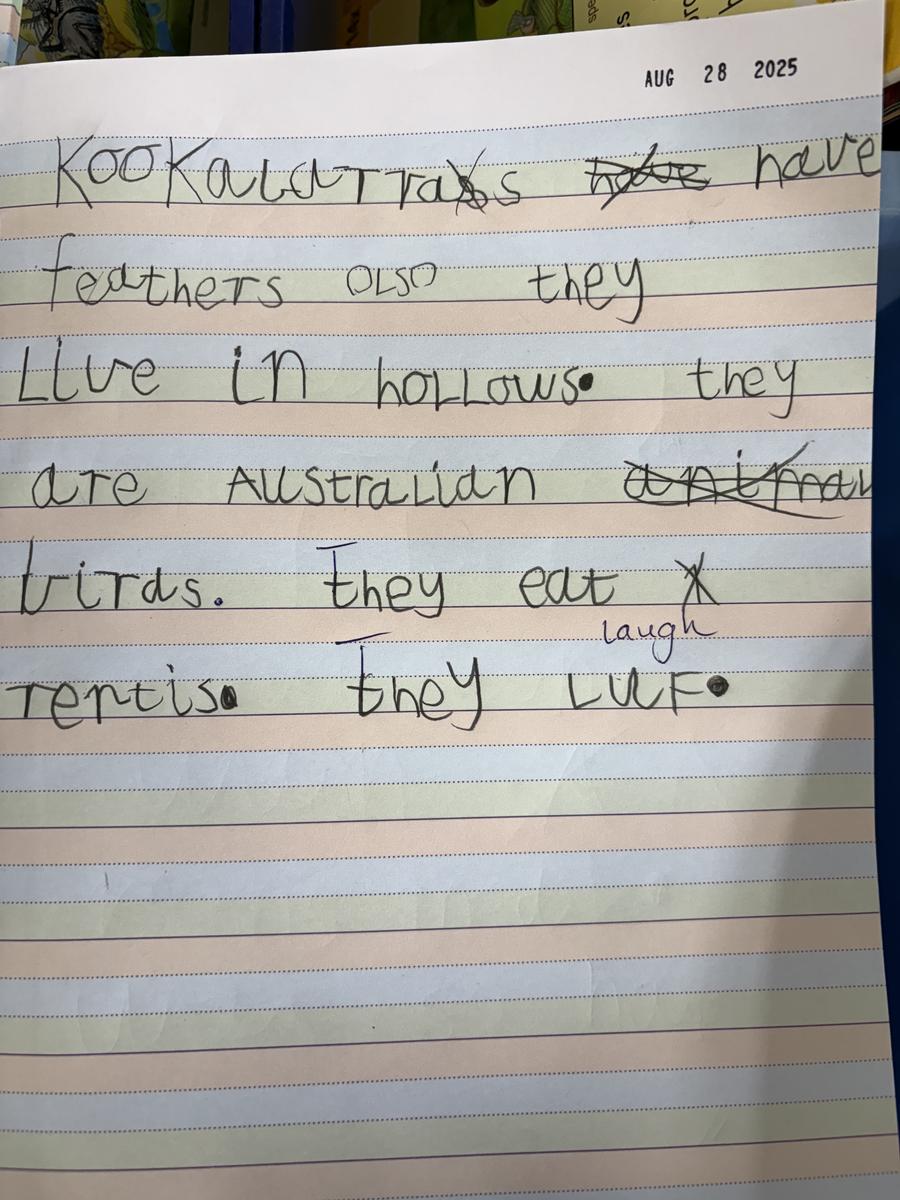 AUG 28 2025
Kookaburras have
feathers olso they
Live in hollows. they
are Australian
birds. They eat
reptis. They
laugh
Luf.